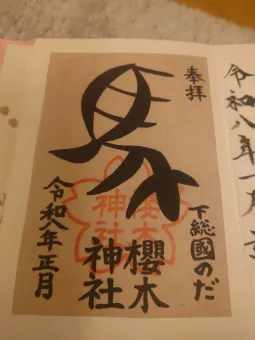 奉拝
下総國のだ
櫻木
神社
馬
櫻木
神社
令和八年正月
令和八年一月